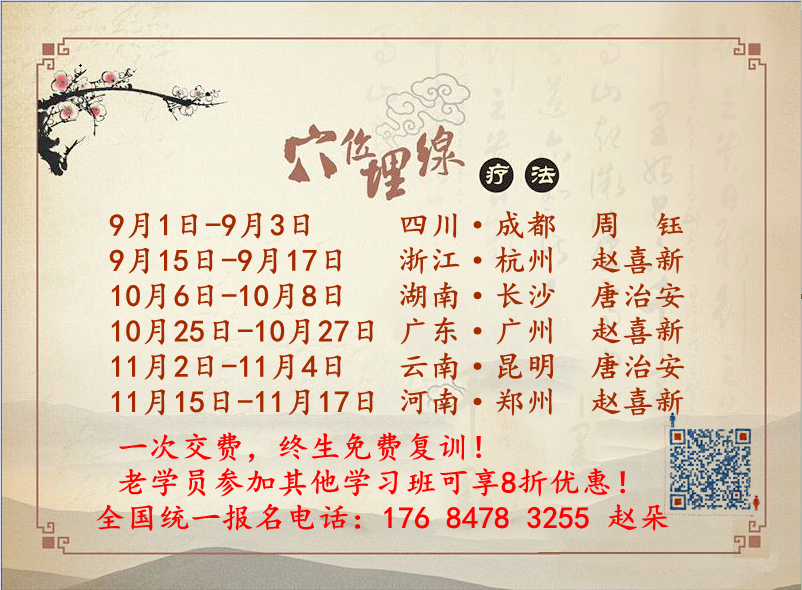 穴位埋线疗法
9月1日-9月3日 四川·成都 周 钰
9月15日-9月17日 浙江·杭州 赵喜新
10月6日-10月8日 湖南·长沙 唐治安
10月25日-10月27日 广东·广州 赵喜新
11月2日-11月4日 云南·昆明 唐治安
11月15日-11月17日 河南·郑州 赵喜新
一次交费，终生免费复训！
老学员参加其他学习班可享8折优惠！
全国统一报名电话：176 8478 3255 赵朵